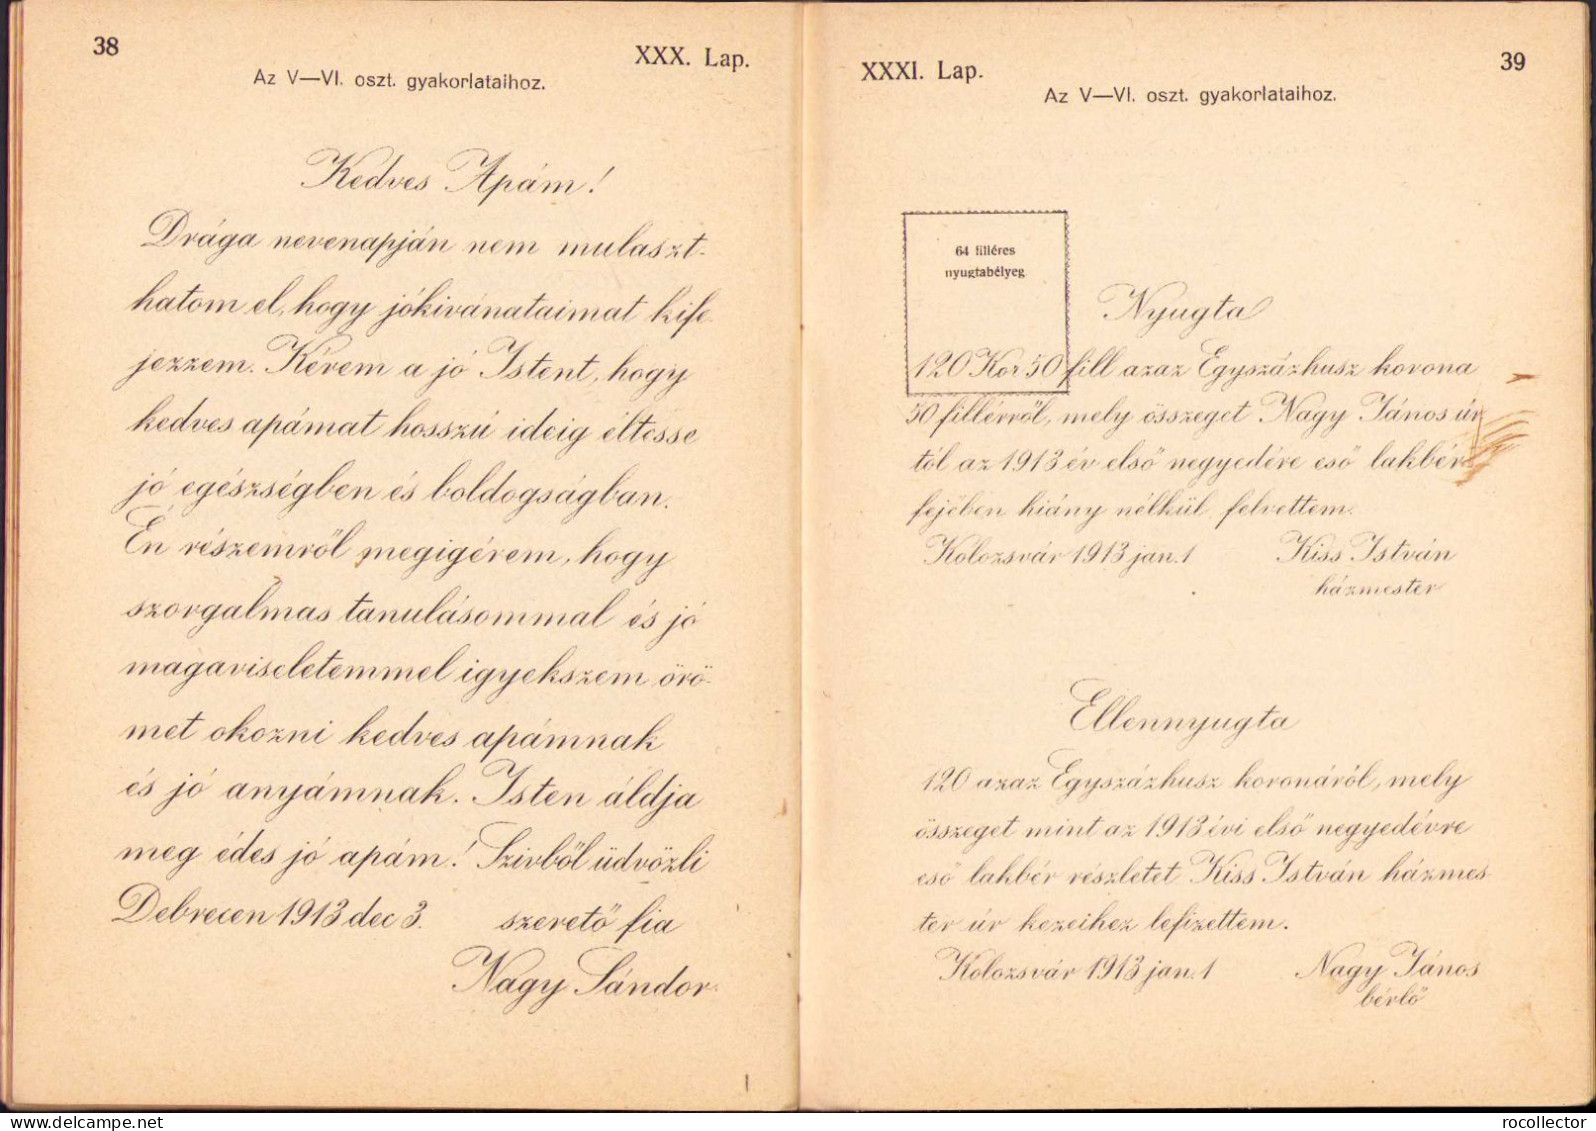 38
XXX. Lap.
Az V—VI. oszt. gyakorlataihoz.
Kedves Apám!
Drága nevenapján nem mulaszt-
hatom el, hogy jókivánataimat kife-
jezzem. Kérem a jó Istent, hogy
kedves apámat hosszú ideig éltesse
jó egészségben és boldogságban.
Én részemről megigérem, hogy
szorgalmas tanulásommal és jó
magaviseletemmel igyekszem örö-
met okozni kedves apámnak
és jó anyámnak. Isten áldja
meg édes jó apám! Szivből üdvözli
Debrecen 1913 dec 3. szerető fia
Nagy Sándor.
XXXI. Lap.
39
Az V—VI. oszt. gyakorlataihoz.
64 filléres
nyugtabélyeg
Nyugta
120 Kor 50 fill azaz Egyszázhusz korona
50 fillérről, mely összeget Nagy János úr
tól az 1913 év első negyedére eső lakbér
fejében hiány nélkül felvettem.
Kolozsvár 1913 jan. 1 Kiss István
házmester
Ellennyugta
120 azaz Egyszázhusz koronáról, mely
összeget mint az 1913 évi első negyedévre
eső lakbér részletet Kiss István házmes
ter úr kezeihez lefizettem.
Kolozsvár 1913 jan. 1 Nagy János
bérlő
rocollector